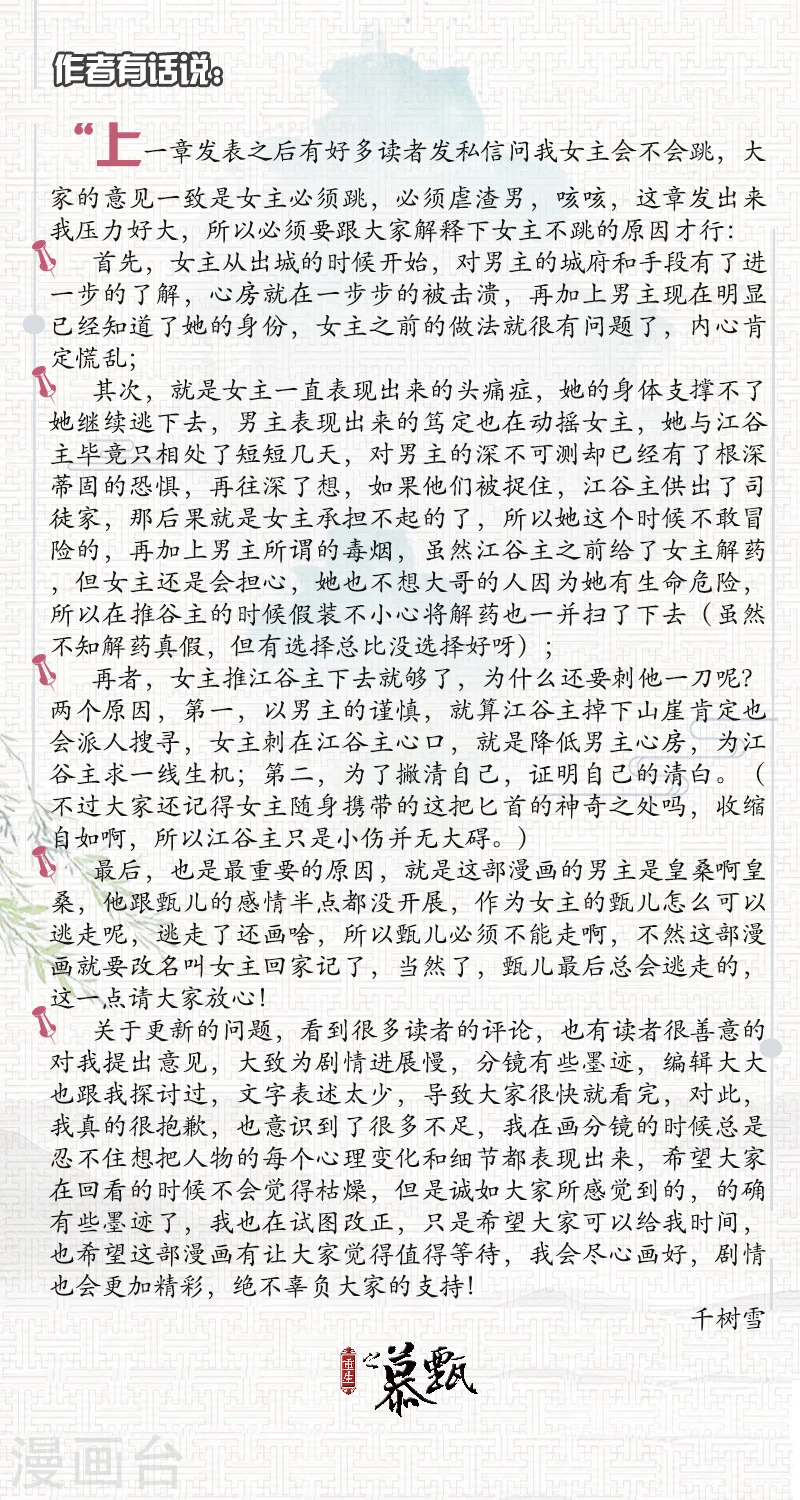 作者有话说：
“上一章发表之后有好多读者发私信问我女主会不会跳，大
家的意见一致是女主必须跳，必须虐渣男，咳咳，这章发出来
我压力好大，所以必须要跟大家解释下女主不跳的原因才行：
首先，女主从出城的时候开始，对男主的城府和手段有了进
一步的了解，心房就在一步步的被击溃，再加上男主现在明显
已经知道了她的身份，女主之前的做法就很有问题了，内心肯
定慌乱；
其次，就是女主一直表现出来的头痛症，她的身体支撑不了
她继续逃下去，男主表现出来的笃定也在动摇女主，她与江谷
主毕竟只相处了短短几天，对男主的深不可测却已经有了根深
蒂固的恐惧，再往深了想，如果他们被捉住，江谷主供出了司
徒家，那后果就是女主承担不起的了，所以她这个时候不敢冒
险的，再加上男主所谓的毒烟，虽然江谷主之前给了女主解药
，但女主还是会担心，她也不想大哥的人因为她有生命危险，
所以在推谷主的时候假装不小心将解药也一并扫了下去（虽然
不知解药真假，但有选择总比没选择好呀）；
再者，女主推江谷主下去就够了，为什么还要刺他一刀呢？
两个原因，第一，以男主的谨慎，就算江谷主掉下山崖肯定也
会派人搜寻，女主刺在江谷主心口，就是降低男主心房，为江
谷主求一线生机；第二，为了撇清自己，证明自己的清白。（
不过大家还记得女主随身携带的这把匕首的神奇之处吗，收缩
自如啊，所以江谷主只是小伤并无大碍。）
最后，也是最重要的原因，就是这部漫画的男主是皇桑啊皇
桑，他跟甄儿的感情半点都没开展，作为女主的甄儿怎么可以
逃走呢，逃走了还画啥，所以甄儿必须不能走啊，不然这部漫
画就要改名叫女主回家记了，当然了，甄儿最后总会逃走的，
这一点请大家放心！
关于更新的问题，看到很多读者的评论，也有读者很善意的
对我提出意见，大致为剧情进展慢，分镜有些墨迹，编辑大大
也跟我探讨过，文字表述太少，导致大家很快就看完，对此，
我真的很抱歉，也意识到了很多不足，我在画分镜的时候总是
忍不住想把人物的每个心理变化和细节都表现出来，希望大家
在回看的时候不会觉得枯燥，但是诚如大家所感觉到的，的确
有些墨迹了，我也在试图改正，只是希望大家可以给我时间，
也希望这部漫画有让大家觉得值得等待，我会尽心画好，剧情
也会更加精彩，绝不辜负大家的支持！
千树雪
重生之慕甄
漫画台